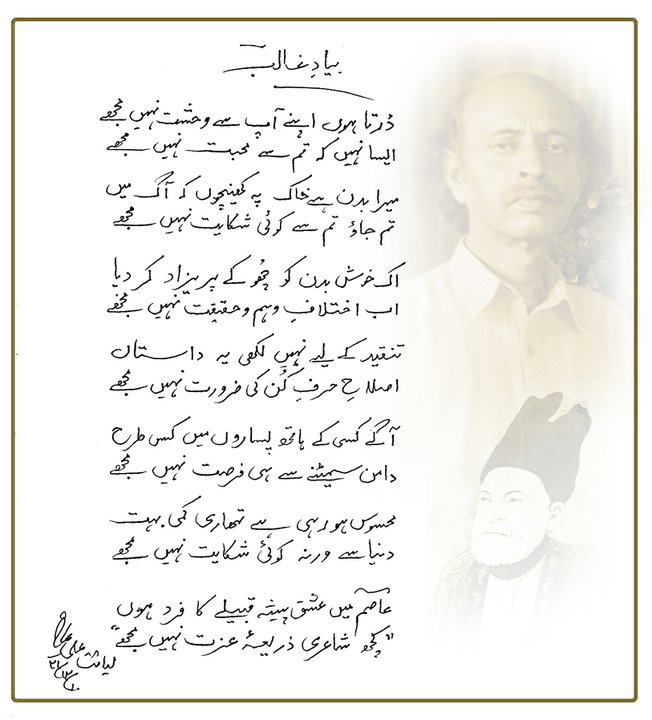 بیادِ غالب
ڈرتا ہوں اپنے آپ سے وحشت نہیں مجھے
ایسا نہیں کہ تم سے محبت نہیں مجھے
میرا بدن ہے خاک پہ کھینچوں کہ آگ میں
تم جاؤ تم سے کوئی شکایت نہیں مجھے
اک خوش بدن کو چھو کے پریزاد کر دیا
اب اختلافِ وہم و حقیقت نہیں مجھے
تنقید کے لیے نہیں لکھی یہ داستاں
اصلاحِ حرفِ کُن کی ضرورت نہیں مجھے
آگے کسی کے ہاتھ پساروں میں کس طرح
دامن سمیٹنے سے ہی فرصت نہیں مجھے
محسوس ہو رہی ہے تمھاری کمی بہت
دنیا سے ورنہ کوئی شکایت نہیں مجھے
عاصمؔ میں عشق پیشہ قبیلے کا فرد ہوں
"کچھ شاعری ذریعۂ عزت نہیں مجھے"
لیاقت علی عاصم